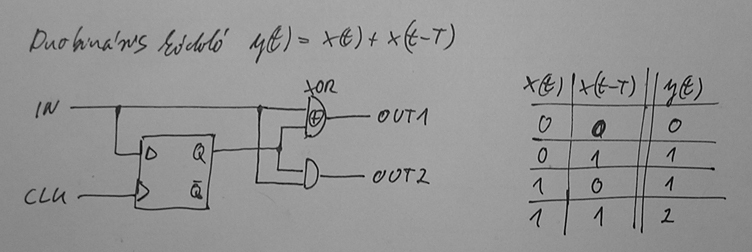 Duobináris kódoló y(t) = x(t) + x(t-T)
XOR
IN
OUT1
D Q
Q̅
CLK
OUT2
x(t) x(t-T) y(t)
0 0 0
0 1 1
1 0 1
1 1 2